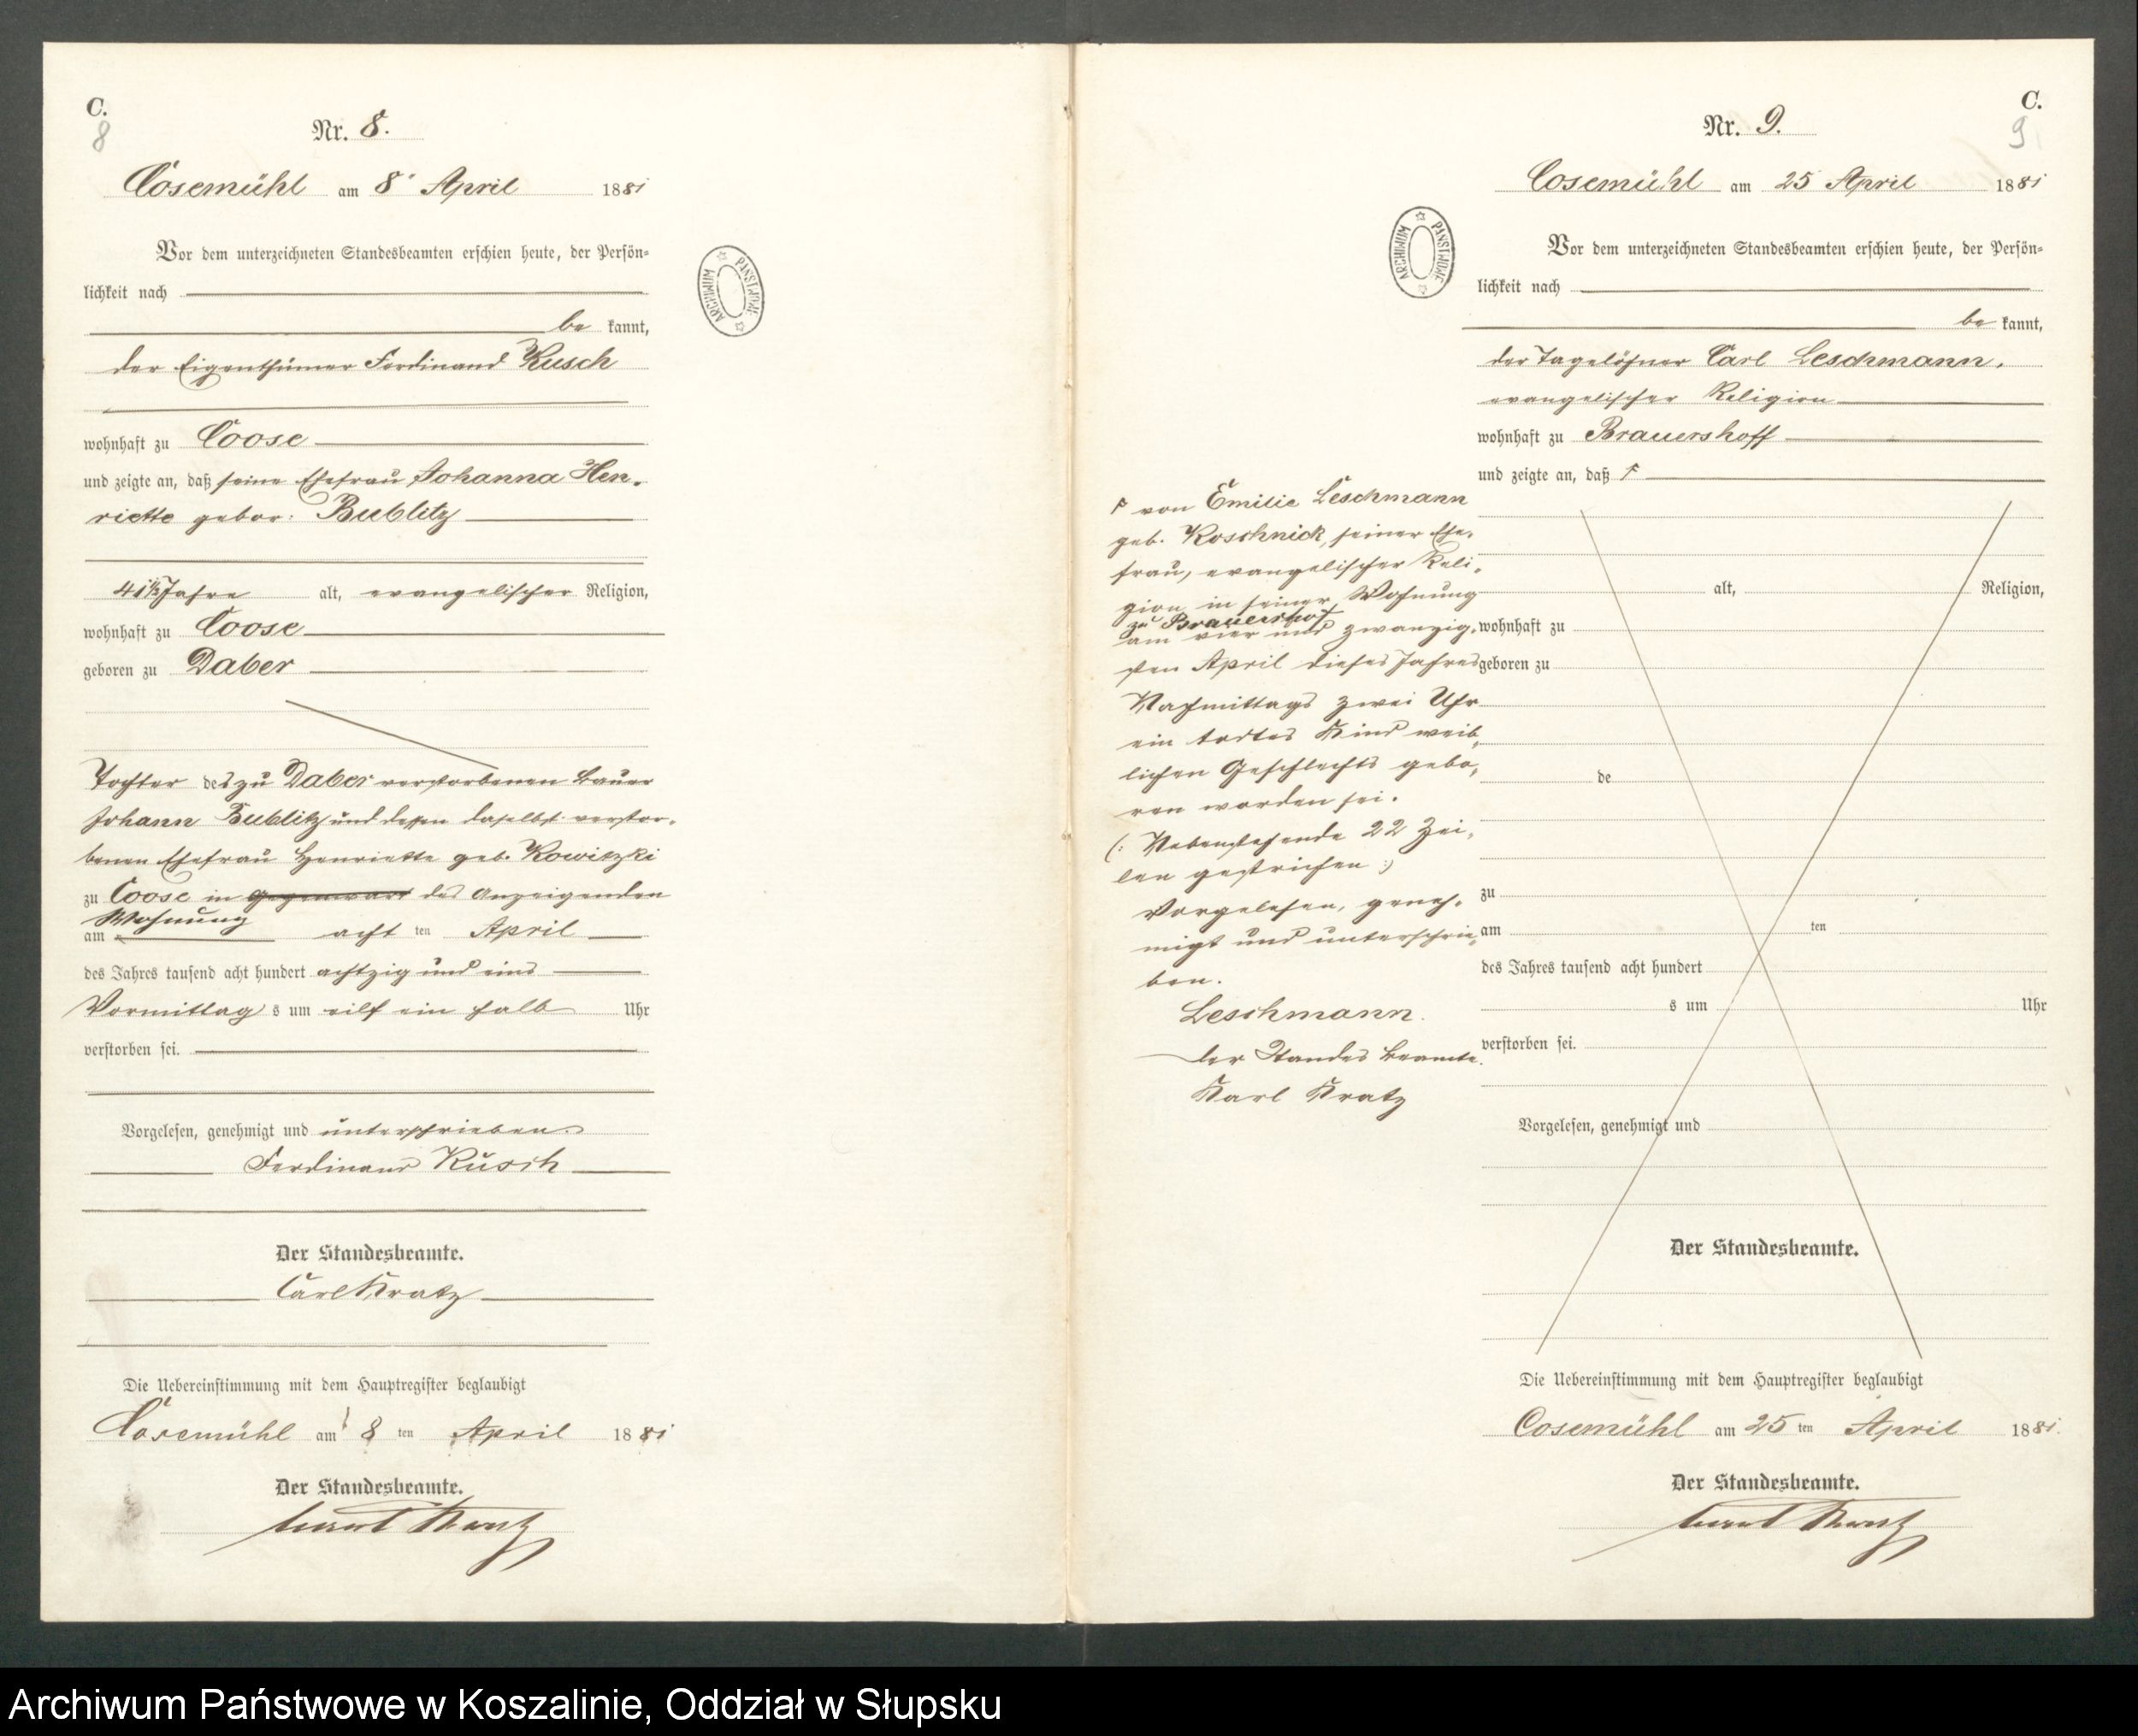 C.
8
Nr. 8.
Cosemühl am 8 April 1881
Vor dem unterzeichneten Standesbeamten erschien heute, der Persön-
lichkeit nach
be kannt,
der Eigenthümer Ferdinand Kusch
wohnhaft zu Coose
und zeigte an, daß seine Ehefrau Johanna Hen-
riette gebor: Bublitz
41½ Jahre alt, evangelischer Religion,
wohnhaft zu Coose
geboren zu Daber
Tochter des zu Daber verstorbenen Bauer
Johann Bublitz und dessen daselbst verstor-
benen Ehefrau Henriette geb. Kowitzki
zu Coose in Gegenwart des Anzeigenden
Wohnung
am acht ten April
des Jahres tausend acht hundert achtzig und eins
Vormittag s um eilf ein halb Uhr
verstorben sei.
Vorgelesen, genehmigt und unterschrieben.
Ferdinand Kusch
Der Standesbeamte.
Carl Kratz
Die Uebereinstimmung mit dem Hauptregister beglaubigt
Cosemühl am 8 ten April 1881
Der Standesbeamte.
Kratz
ARCHIWUM PAŃSTWOWE
C.
9
Nr. 9.
Cosemühl am 25 April 1881
ARCHIWUM PAŃSTWOWE
Vor dem unterzeichneten Standesbeamten erschien heute, der Persön-
lichkeit nach
be kannt,
der Tagelöhner Carl Leschmann,
evangelischer Religion
wohnhaft zu Brauershoff
und zeigte an, daß
von Emilie Leschmann
geb. Koschnick, seiner Ehe-
frau, evangelischer Reli-
gion in seiner Wohnung
zu Brauershof
am vier und zwanzig-
sten April dieses Jahres
Nachmittags zwei Uhr
ein todtes Kind weib-
lichen Geschlechts gebo-
ren worden sei.
(: Nebenstehende 22 Zei-
len gestrichen :)
Vorgelesen, geneh-
migt und unterschrie-
ben.
Leschmann.
der Standes Beamte.
Karl Kratz
alt, Religion,
wohnhaft zu
geboren zu
de
zu
am ten
des Jahres tausend acht hundert
s um Uhr
verstorben sei.
Vorgelesen, genehmigt und
Der Standesbeamte.
Die Uebereinstimmung mit dem Hauptregister beglaubigt
Cosemühl am 25 ten April 1881.
Der Standesbeamte.
Kratz
Archiwum Państwowe w Koszalinie, Oddział w Słupsku